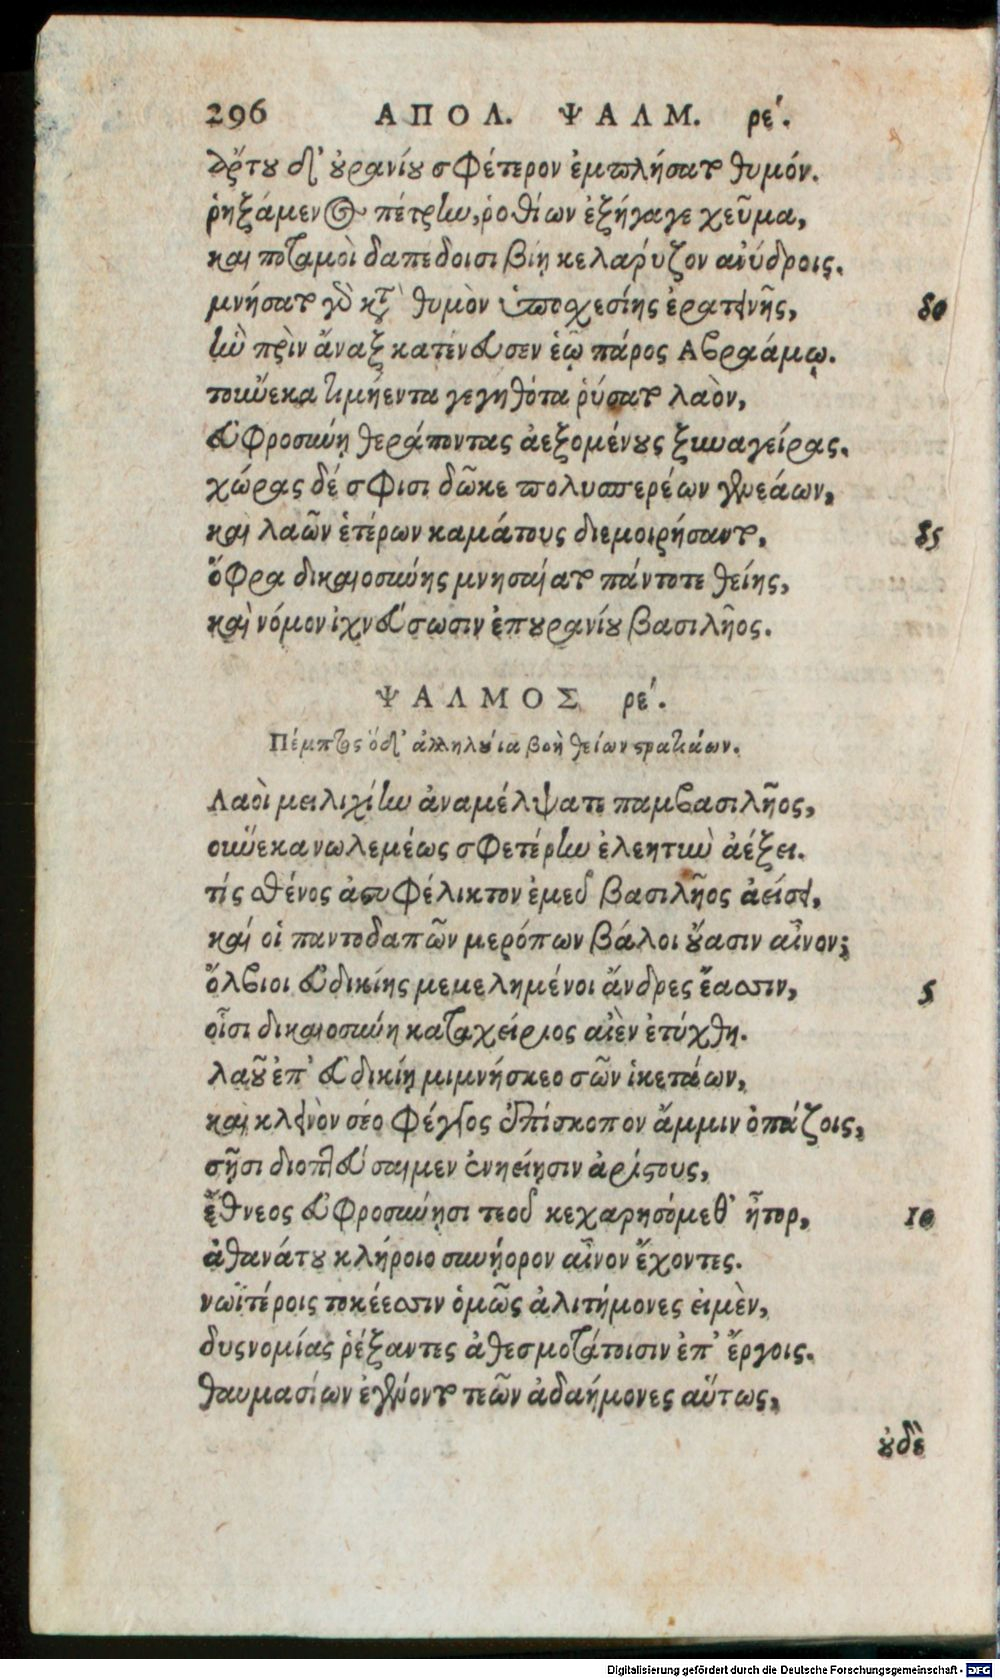 296 ΑΠΟΛ. ΨΑΛΜ. ρε΄.
ἄρτου δ' οὐρανίου σφέτερον ἐμπλήσατο θυμόν.
ῥηξάμενος πέτρην, ῥοθίων ἐξήγαγε χεῦμα,
καὶ ποταμοὶ δαπέδοισι βίῃ κελάρυζον ἀνύδροις.
μνήσατο γὸ κτ' θυμὸν ὑποσχεσίης ἐρατεινῆς, 80
ἣν πρὶν ἄναξ κατένευσεν ἑῷ πάρος Αβραάμῳ.
τοὔνεκα τιμήεντα γεγηθότα ῥύσατο λαὸν,
εὐφροσύνῃ θεράποντας ἀεξομένους ξυναγείρας.
χώρας δέ σφισι δῶκε πολυσπερέων γενεάων,
καὶ λαῶν ἑτέρων καμάτους διεμοιρήσαντο, 85
ὄφρα δικαιοσύνης μνησαίατο πάντοτε θείης,
καὶ νόμον ἰχνεύσωσιν ἐπουρανίου βασιλῆος.
ΨΑΛΜΟΣ ρε΄.
Πέμπτος ὅδ' ἀλληλούϊα βοὴ θείων στρατιάων.
Λαοὶ μειλιχίην ἀναμέλψατε παμβασιλῆος,
οὕνεκα νωλεμέως σφετέρην ἐλεητὺν ἀέξει.
τίς σθένος ἀστυφέλικτον ἐμεῦ βασιλῆος ἀείσει,
καί οἱ παντοδαπῶν μερόπων βάλοι οὔασιν αἶνον;
ὄλβιοι εὐδικίης μεμελημένοι ἄνδρες ἔασσιν, 5
οἷσι δικαιοσύνη καταχείριος αἰὲν ἐτύχθη.
λαοῦ ἐπ' εὐδικίῃ μιμνήσκεο σῶν ἱκετάων,
καὶ κλεινὸν σέο φέγγος ἐπίσκοπον ἄμμιν ὀπάζοις,
σῇσι διοπτεύσαιμεν ἐνηείῃσιν ἀρίστους,
ἔθνεος εὐφροσύνῃσι τεοῦ κεχαρησόμεθ' ἦτορ, 10
ἀθανάτου κλήροιο συνήορον αἶνον ἔχοντες.
νωϊτέροις τοκέεσσιν ὁμῶς ἀλιτήμονες εἰμὲν,
δυσνομίας ῥέξαντες ἀθεσμοτάτοισιν ἐπ' ἔργοις.
θαυμασίων ἐγένοντο τεῶν ἀδαήμονες αὔτως,
οὐδὲ
Digitalisierung gefördert durch die Deutsche Forschungsgemeinschaft - DFG